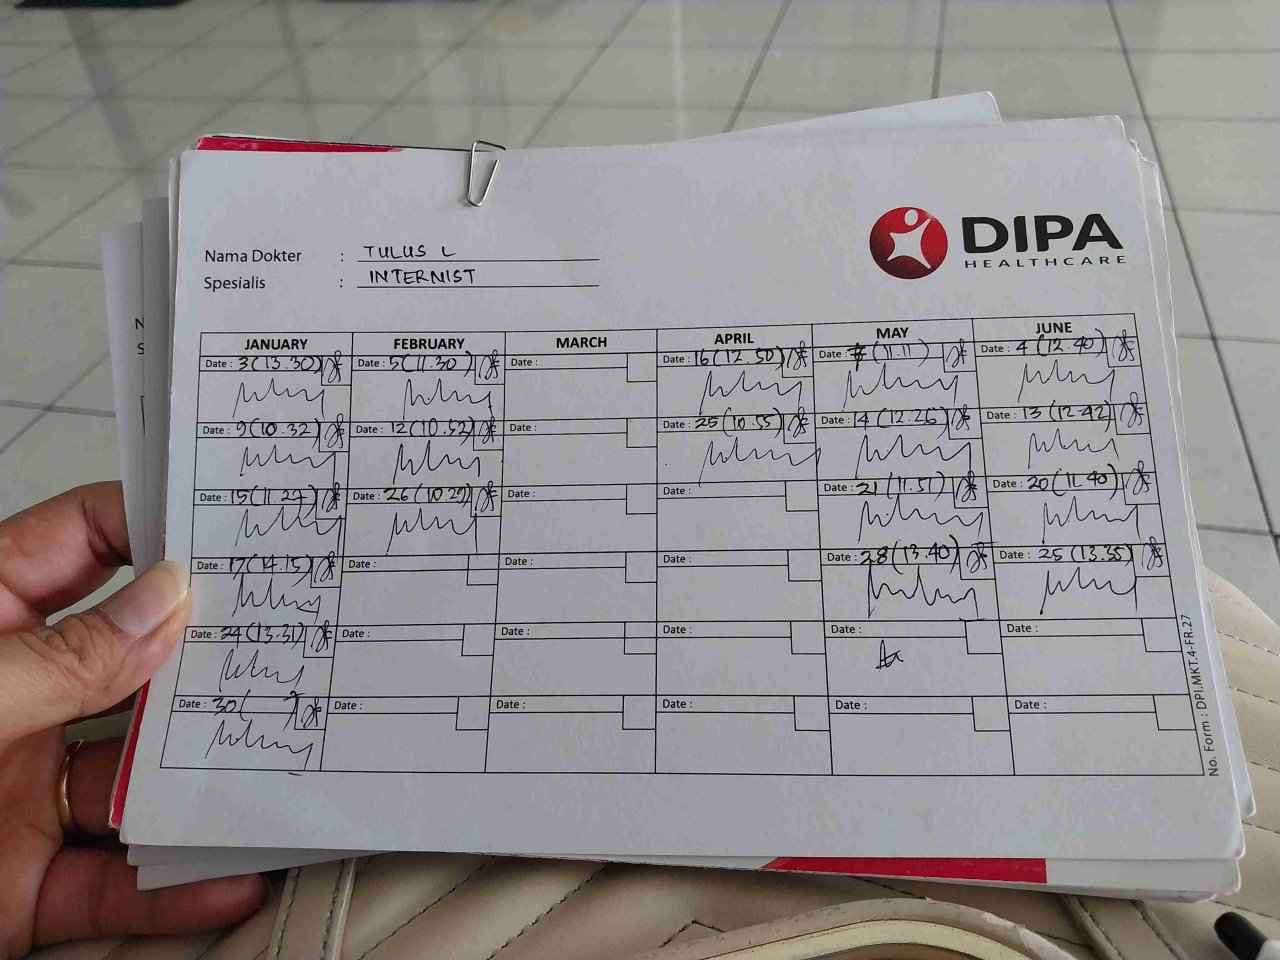 Nama Dokter : TULUS L
Spesialis : INTERNIST
DIPA
HEALTHCARE
JANUARY FEBRUARY MARCH APRIL MAY JUNE
Date : 3 (13.30) Date : 5 (11.30) Date : Date : 16 (12.50) Date : 7 (11.11) Date : 4 (12.40)
Date : 9 (10.32) Date : 12 (10.52) Date : Date : 25 (10.55) Date : 14 (12.26) Date : 13 (12.42)
Date : 15 (11.27) Date : 26 (10.27) Date : Date : Date : 21 (11.51) Date : 20 (11.40)
Date : 17 (14.15) Date : Date : Date : Date : 28 (13.40) Date : 25 (13.35)
Date : 24 (13.31) Date : Date : Date : Date : Date :
Date : 30 ( ) Date : Date : Date : Date : Date :
No. Form : DPI.MKT.4-FR.27
N
S